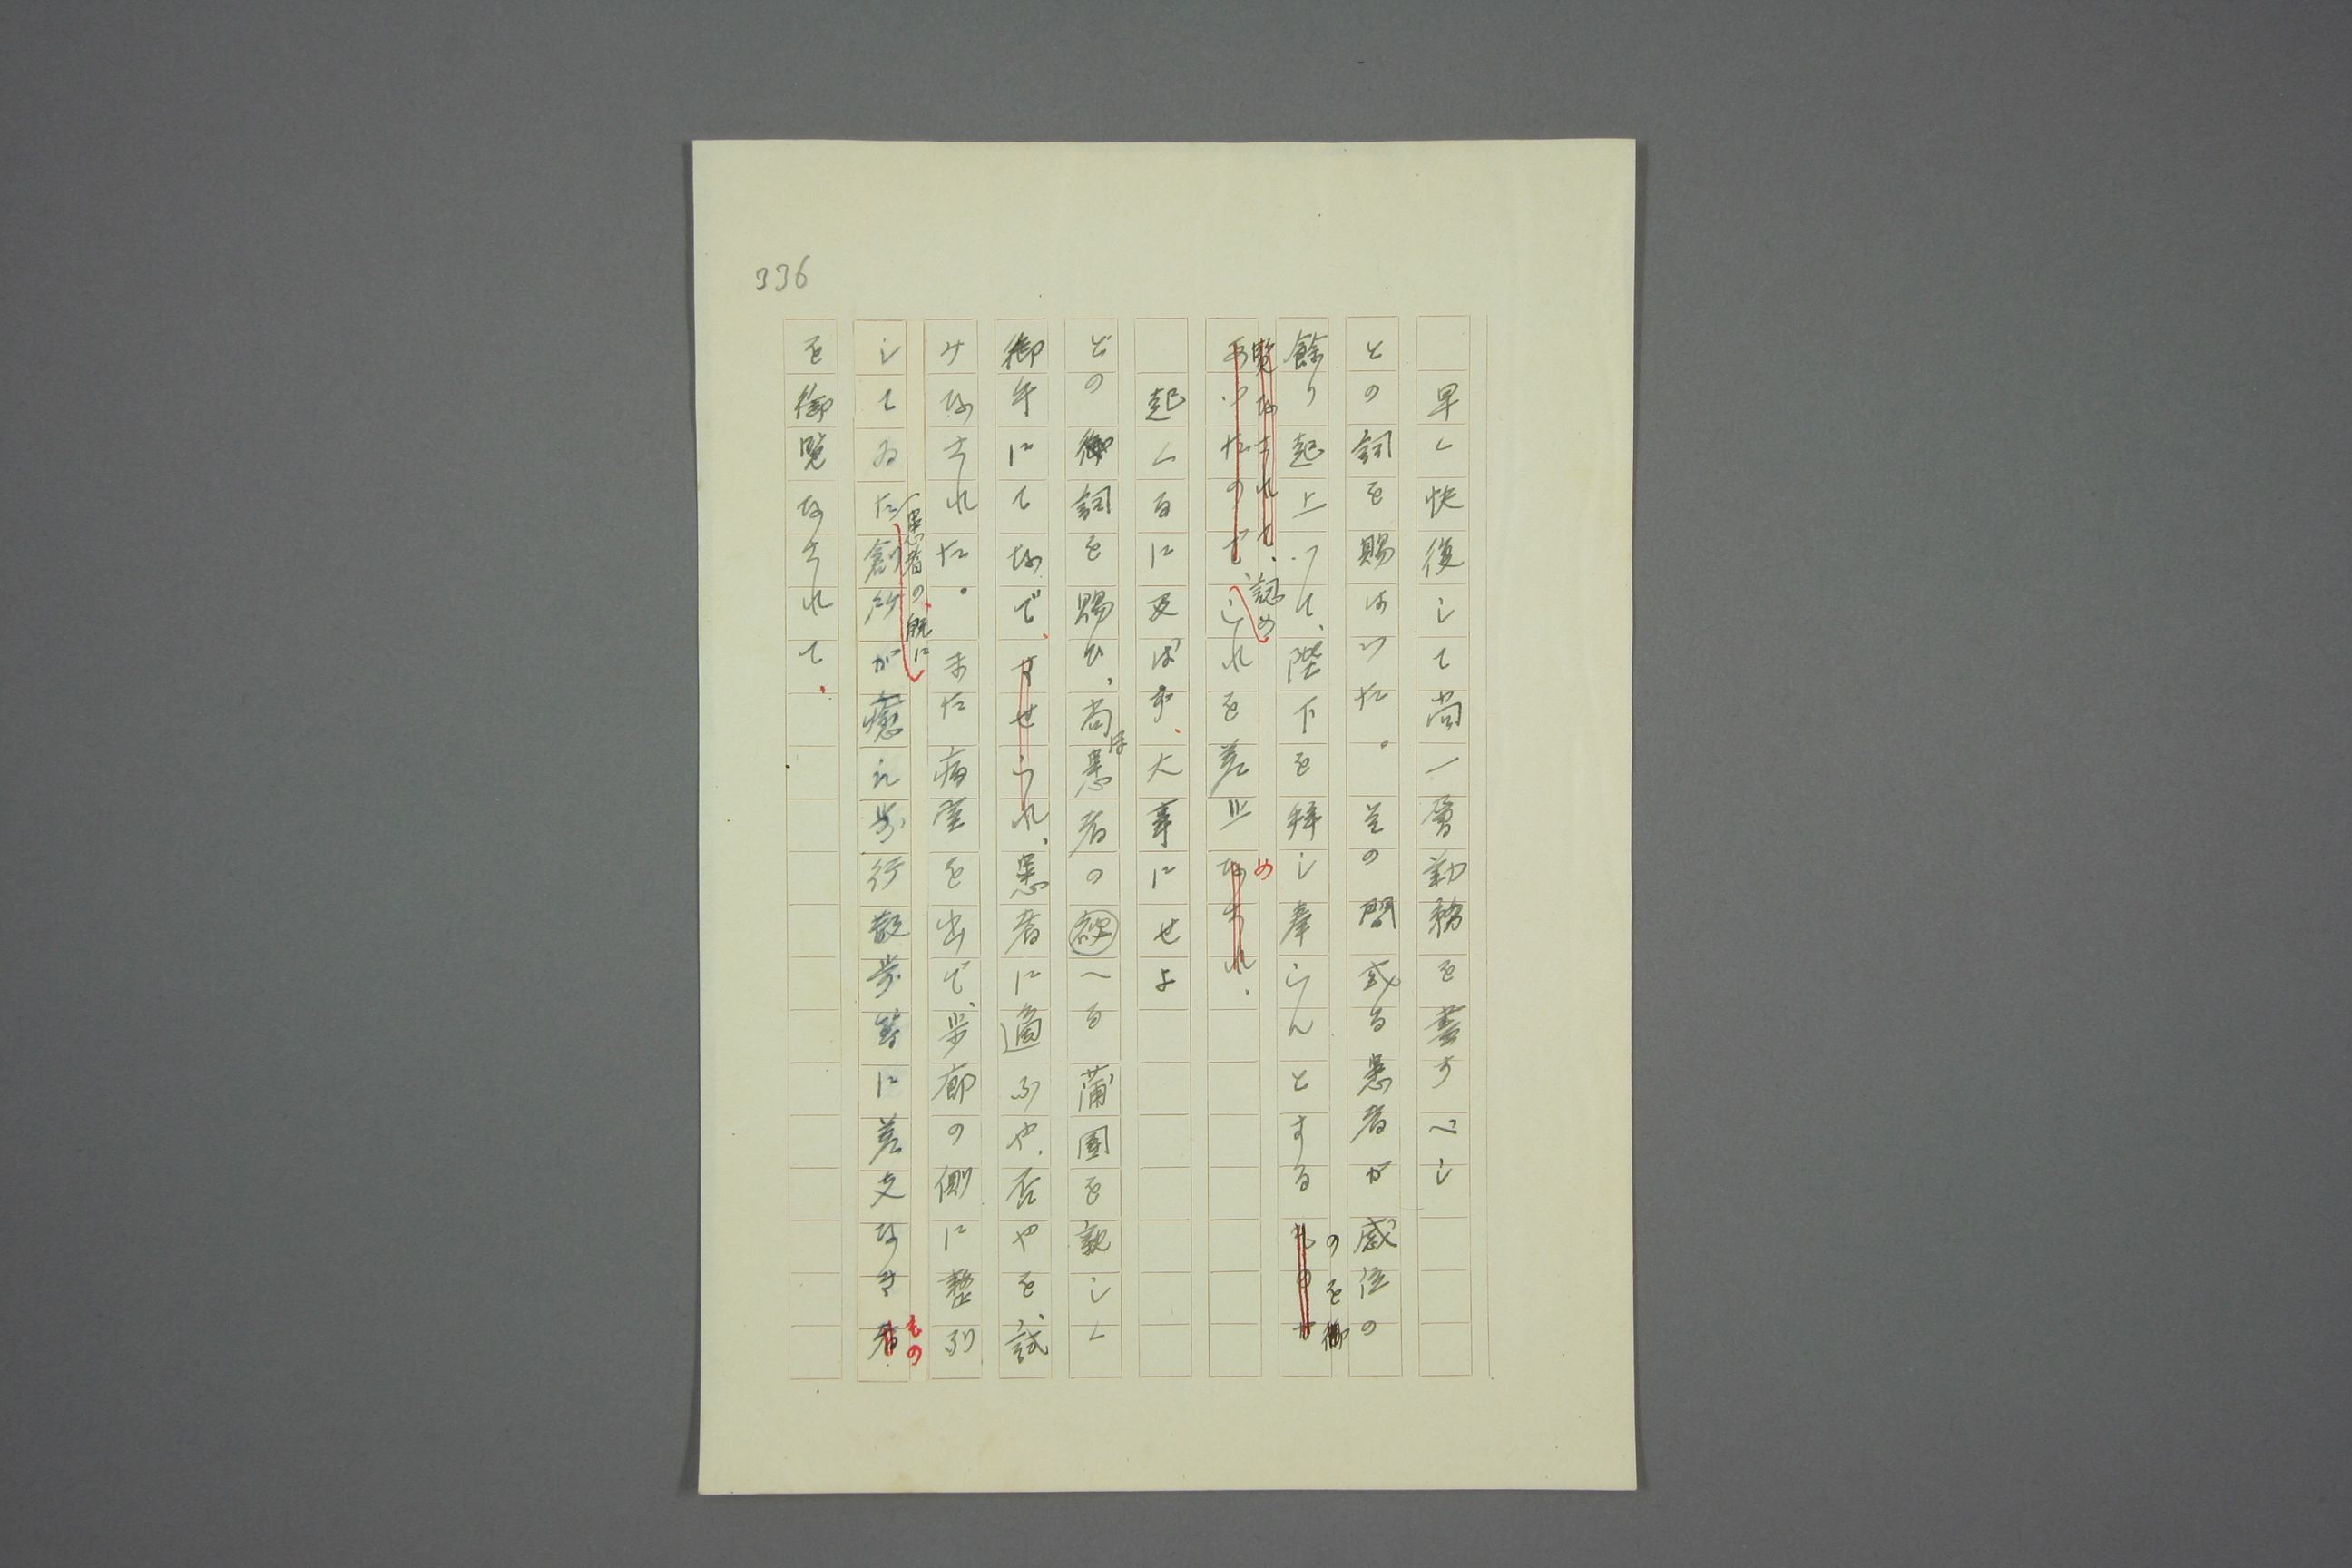 336
早く快復して尚一層勤務を盡すべし
との詞を賜はつた。その間或る患者が感泣の
餘り起上つて、陛下を拜し奉らんとするものが
のを御
覽なされて、認め
あつたので、これを差止なされ、
め
起くるに及ばず、大事にせよ
との御詞を賜ひ、尚患者の被へる蒲團を親しく
ほ
御手にてなで、させられ、患者に適ふや、否やを、試
みなされた。また病室を出で、歩廊の側に整列
患者の、既に
してゐた創所が癒え歩行散歩等に差支なき者
もの
を御覧なされて、